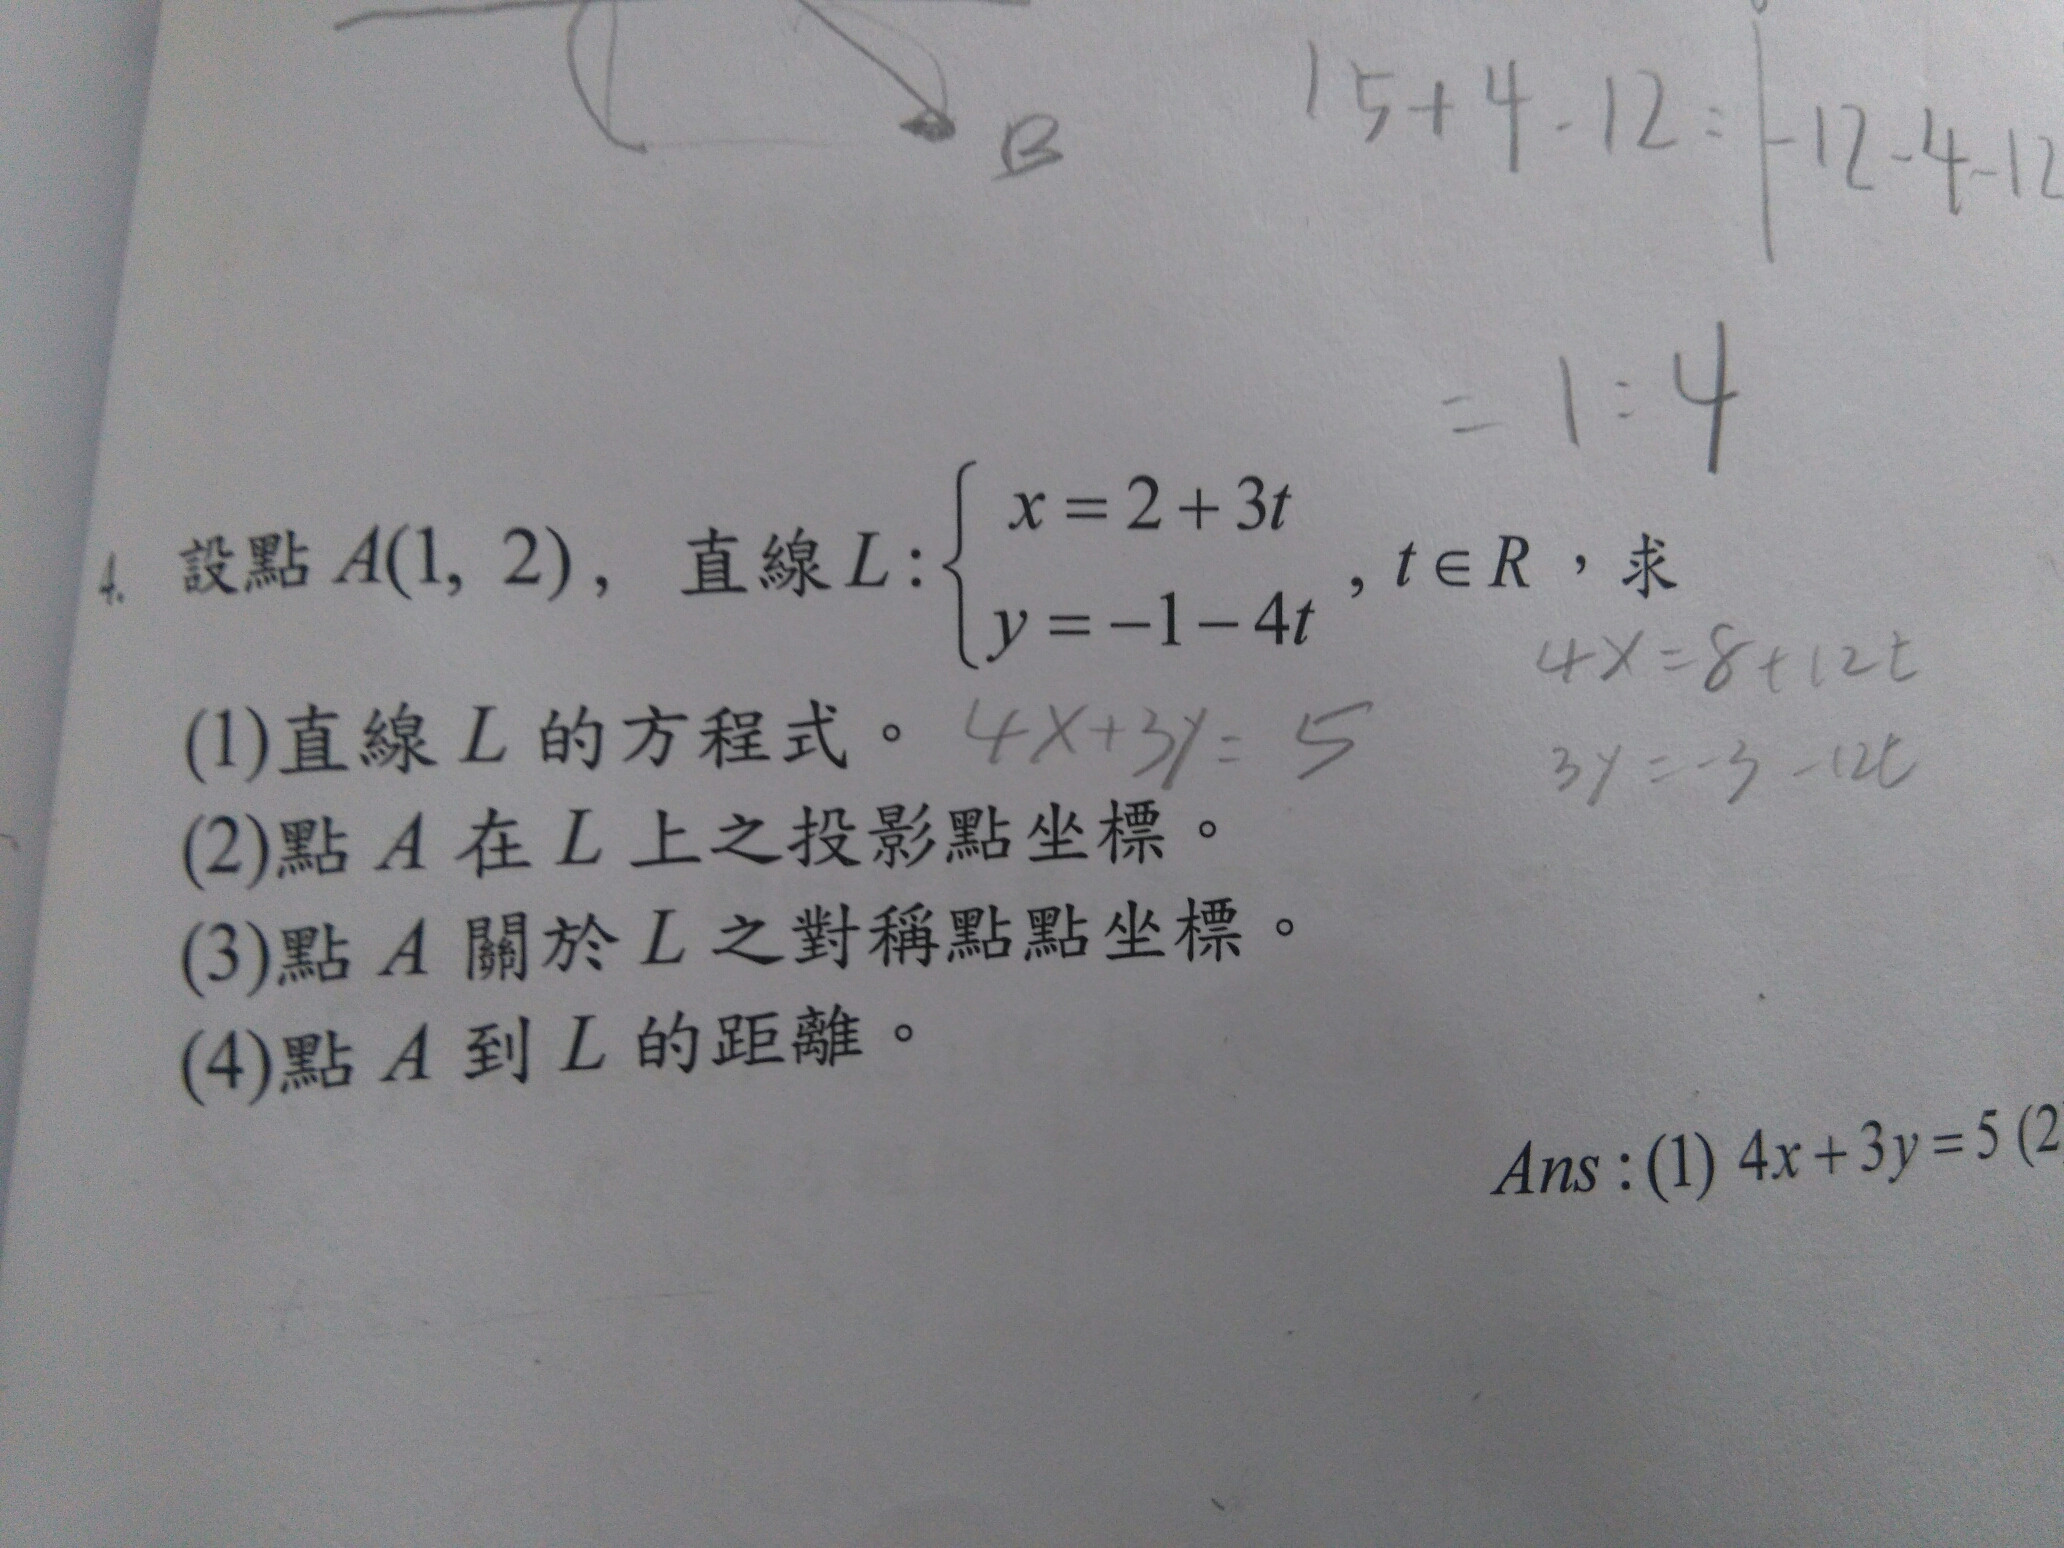 B
15+4-12=|-12-4-12
=1:4
4. 設點 A(1, 2), 直線 L:{ x=2+3t
y=-1-4t , t∈R,求
4x=8+12t
(1)直線 L 的方程式。 4x+3y=5
3y=-3-12t
(2)點 A 在 L 上之投影點坐標。
(3)點 A 關於 L 之對稱點點坐標。
(4)點 A 到 L 的距離。
Ans:(1) 4x+3y=5 (2)